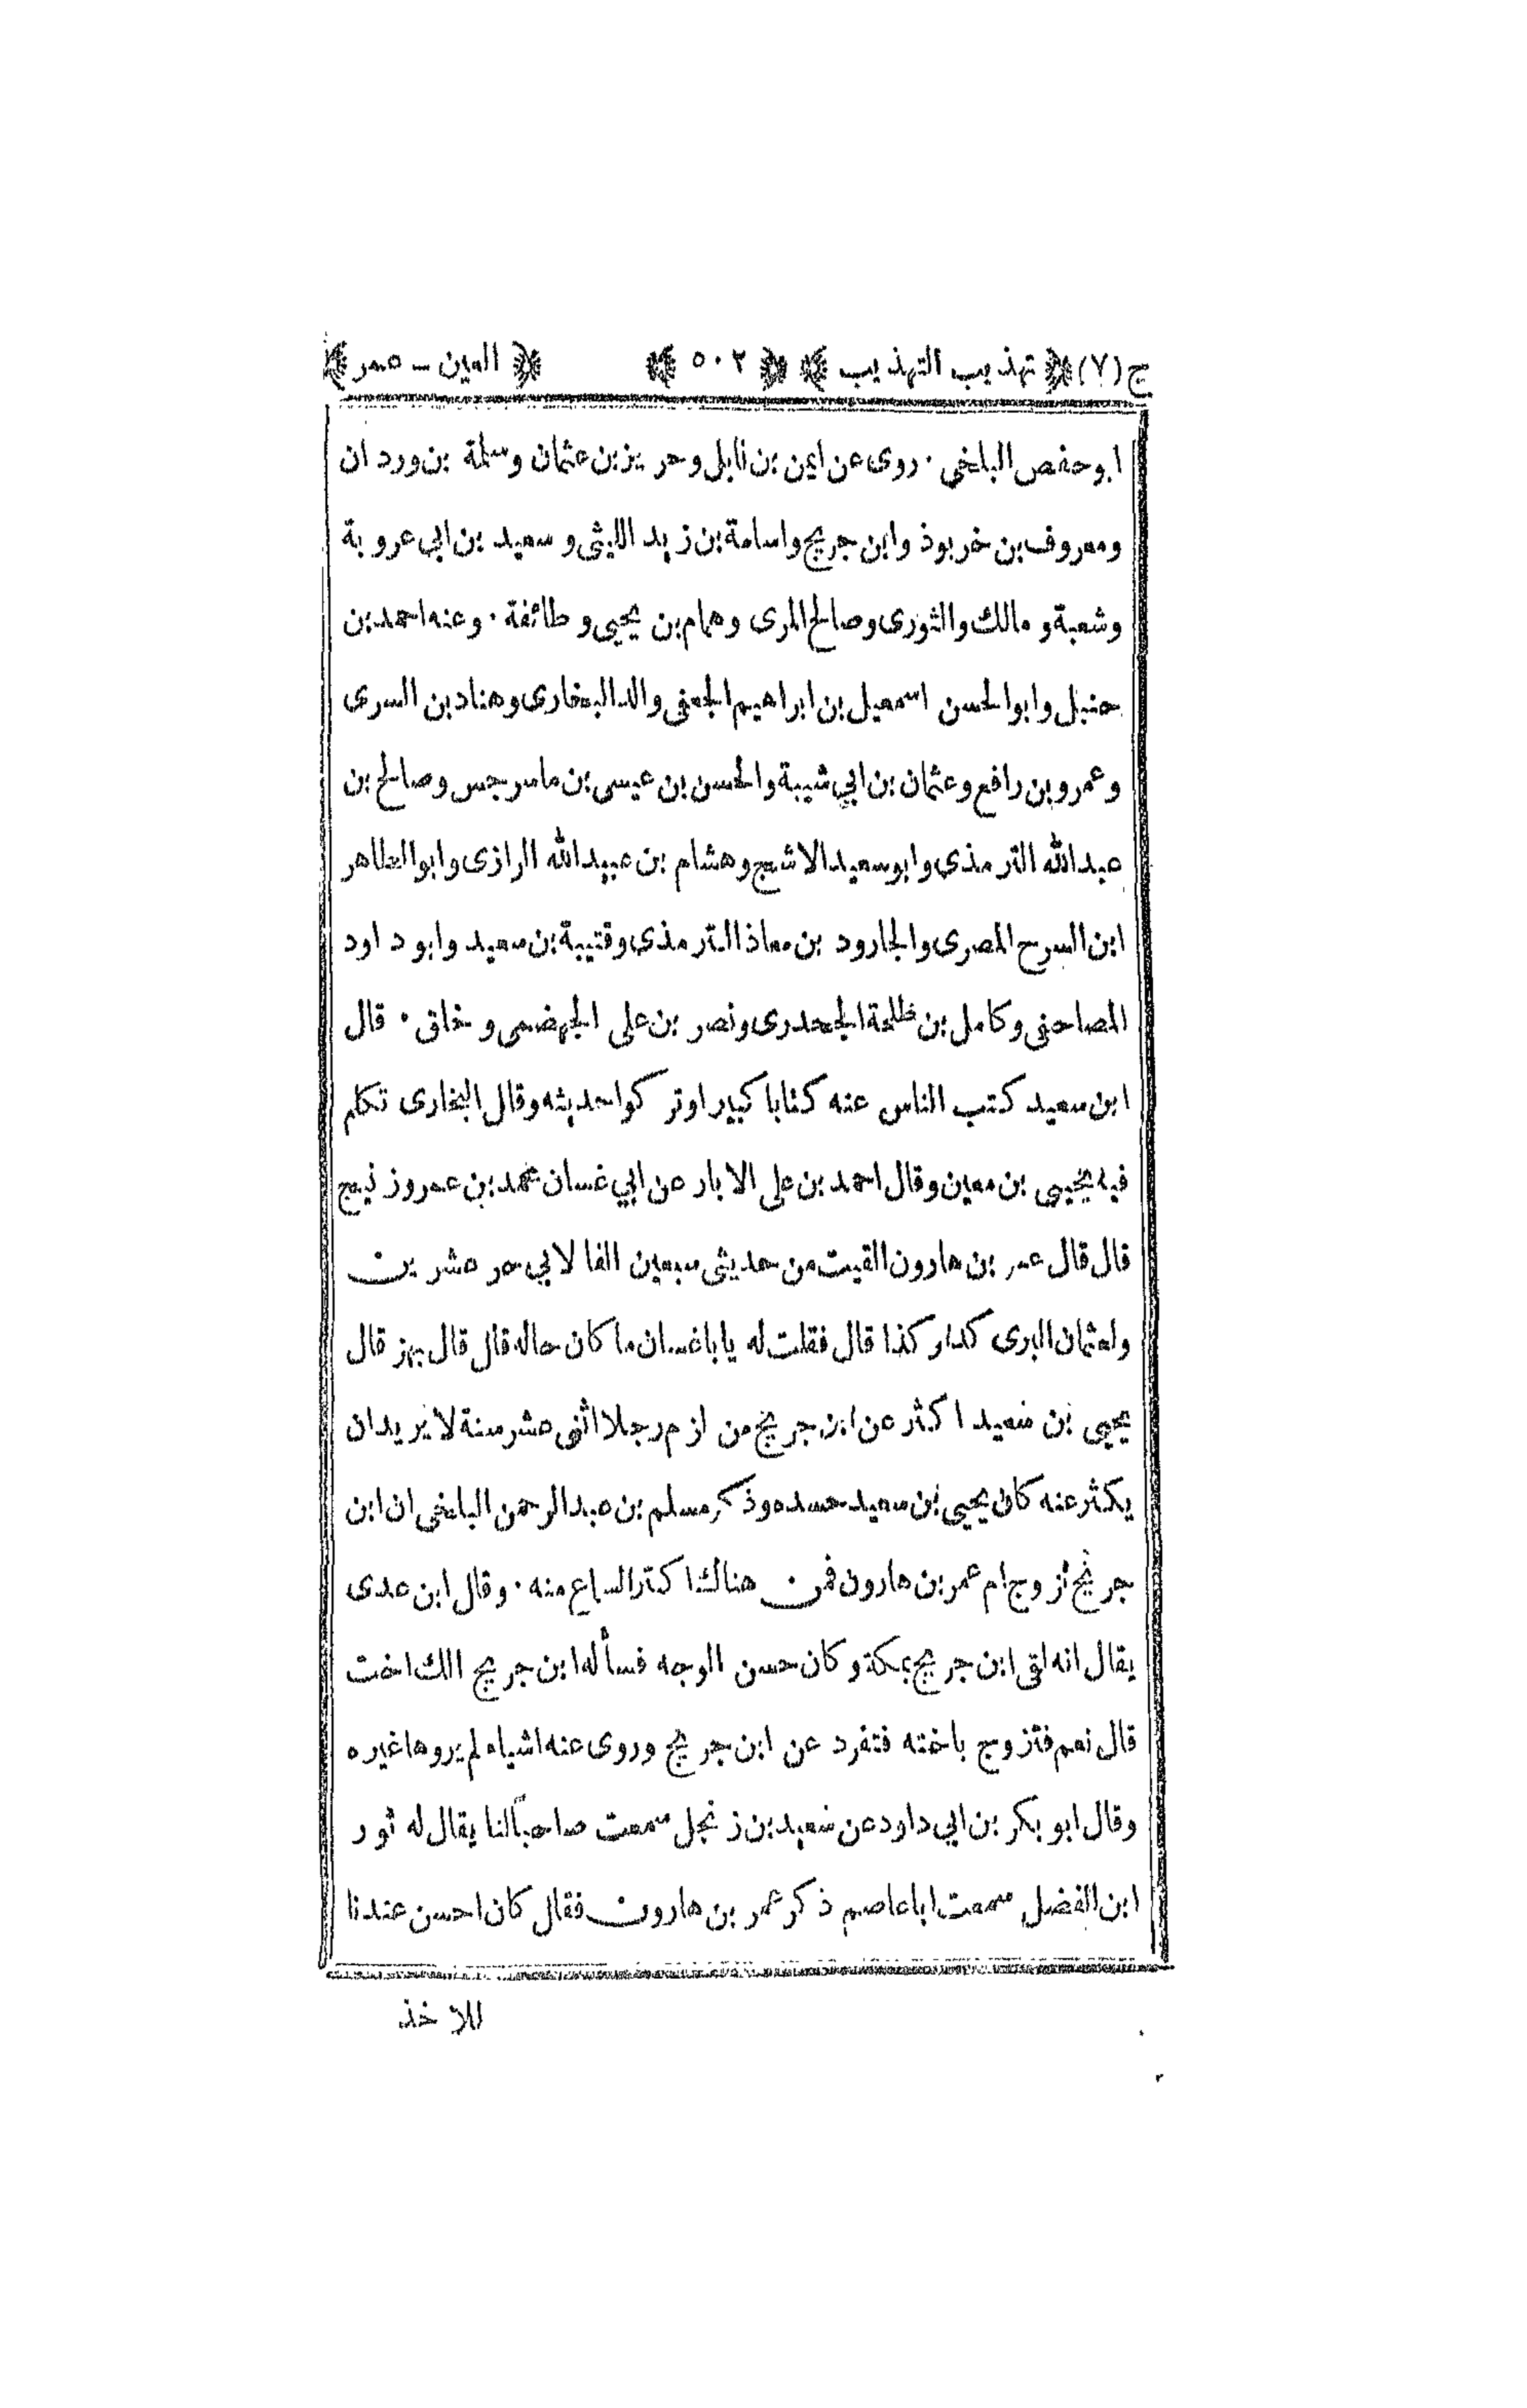 ج (٧) ﴿ تهذيب التهذيب ﴾ ﴿ ٥٠٢ ﴾ ﴿ العين - عمر ﴾
ابو حفص البلخي . روى عن ايمن بن نابل وحريز بن عثمان وسلمة بن وردان
ومعروف بن خربوذ وابن جريج واسامة بن زيد الليثى وسعيد بن ابي عروبة
وشعبة ومالك والثورى وصالح المرى وهمام بن يحيى وطائفة . وعنه احمد بن
حنبل وابو الحسن اسمعيل بن ابراهيم الجعفى والد البخارى وهناد بن السرى
وعمرو بن رافع وعثمان بن ابي شيبة والحسن بن عيسى بن ماسرجس وصالح بن
عبد الله الترمذى وابو سعيد الاشج وهشام بن عبيد الله الرازى وابو الطاهر
ابن السرح المصرى والجارود بن معاذ الترمذى وقتيبة بن سعيد وابو داود
المصاحفى وكامل بن طلحة الجحدرى ونصر بن على الجهضمى وخلق . قال
ابن سعيد كتب الناس عنه كتابا كبيرا وتركوا حديثه وقال البخارى تكلم
فيه يحيى بن معين وقال احمد بن على الابار عن ابي غسان محمد بن عمرو زنيج
قال قال عمر بن هارون القيت من حديثى سبعين الفا لابي جزء عشرين
ولعثمان البرى كذا وكذا قال فقلت له يا باغسان ما كان حاله قال قال بهز قال
يحيى بن سعيد اكثر عن ابن جريج من لزم رجلا اثنى عشر سنة لا يريد ان
يكثر عنه كان يحيى بن سعيد حسده وذكر مسلم بن عبد الرحمن البلخى ان ابن
جريج تزوج ام عمر بن هارون فمن هناك اكثر السماع منه . وقال ابن عدى
يقال انه لقى ابن جريج بمكة وكان حسن الوجه فسأله ابن جريج الك اخت
قال نعم فتزوج باخته فتفرد عن ابن جريج وروى عنه اشياء لم يروها غيره
وقال ابو بكر بن ابي داود عن سعيد بن زنجل سمعت صاحبا لنا يقال له ثور
ابن الفضل سمعت ابا عاصم ذكر عمر بن هارون فقال كان احسن عندنا
للاخذ